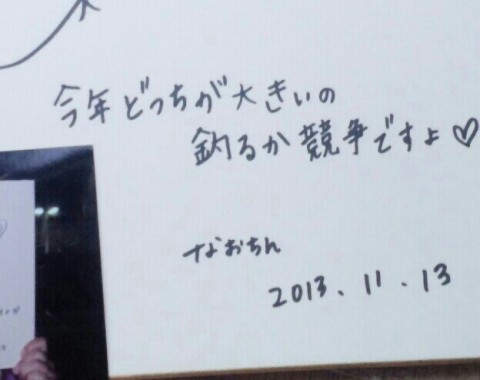 今年どっちが大きいの
釣るか競争ですよ♡
なおちん
2013.11.13